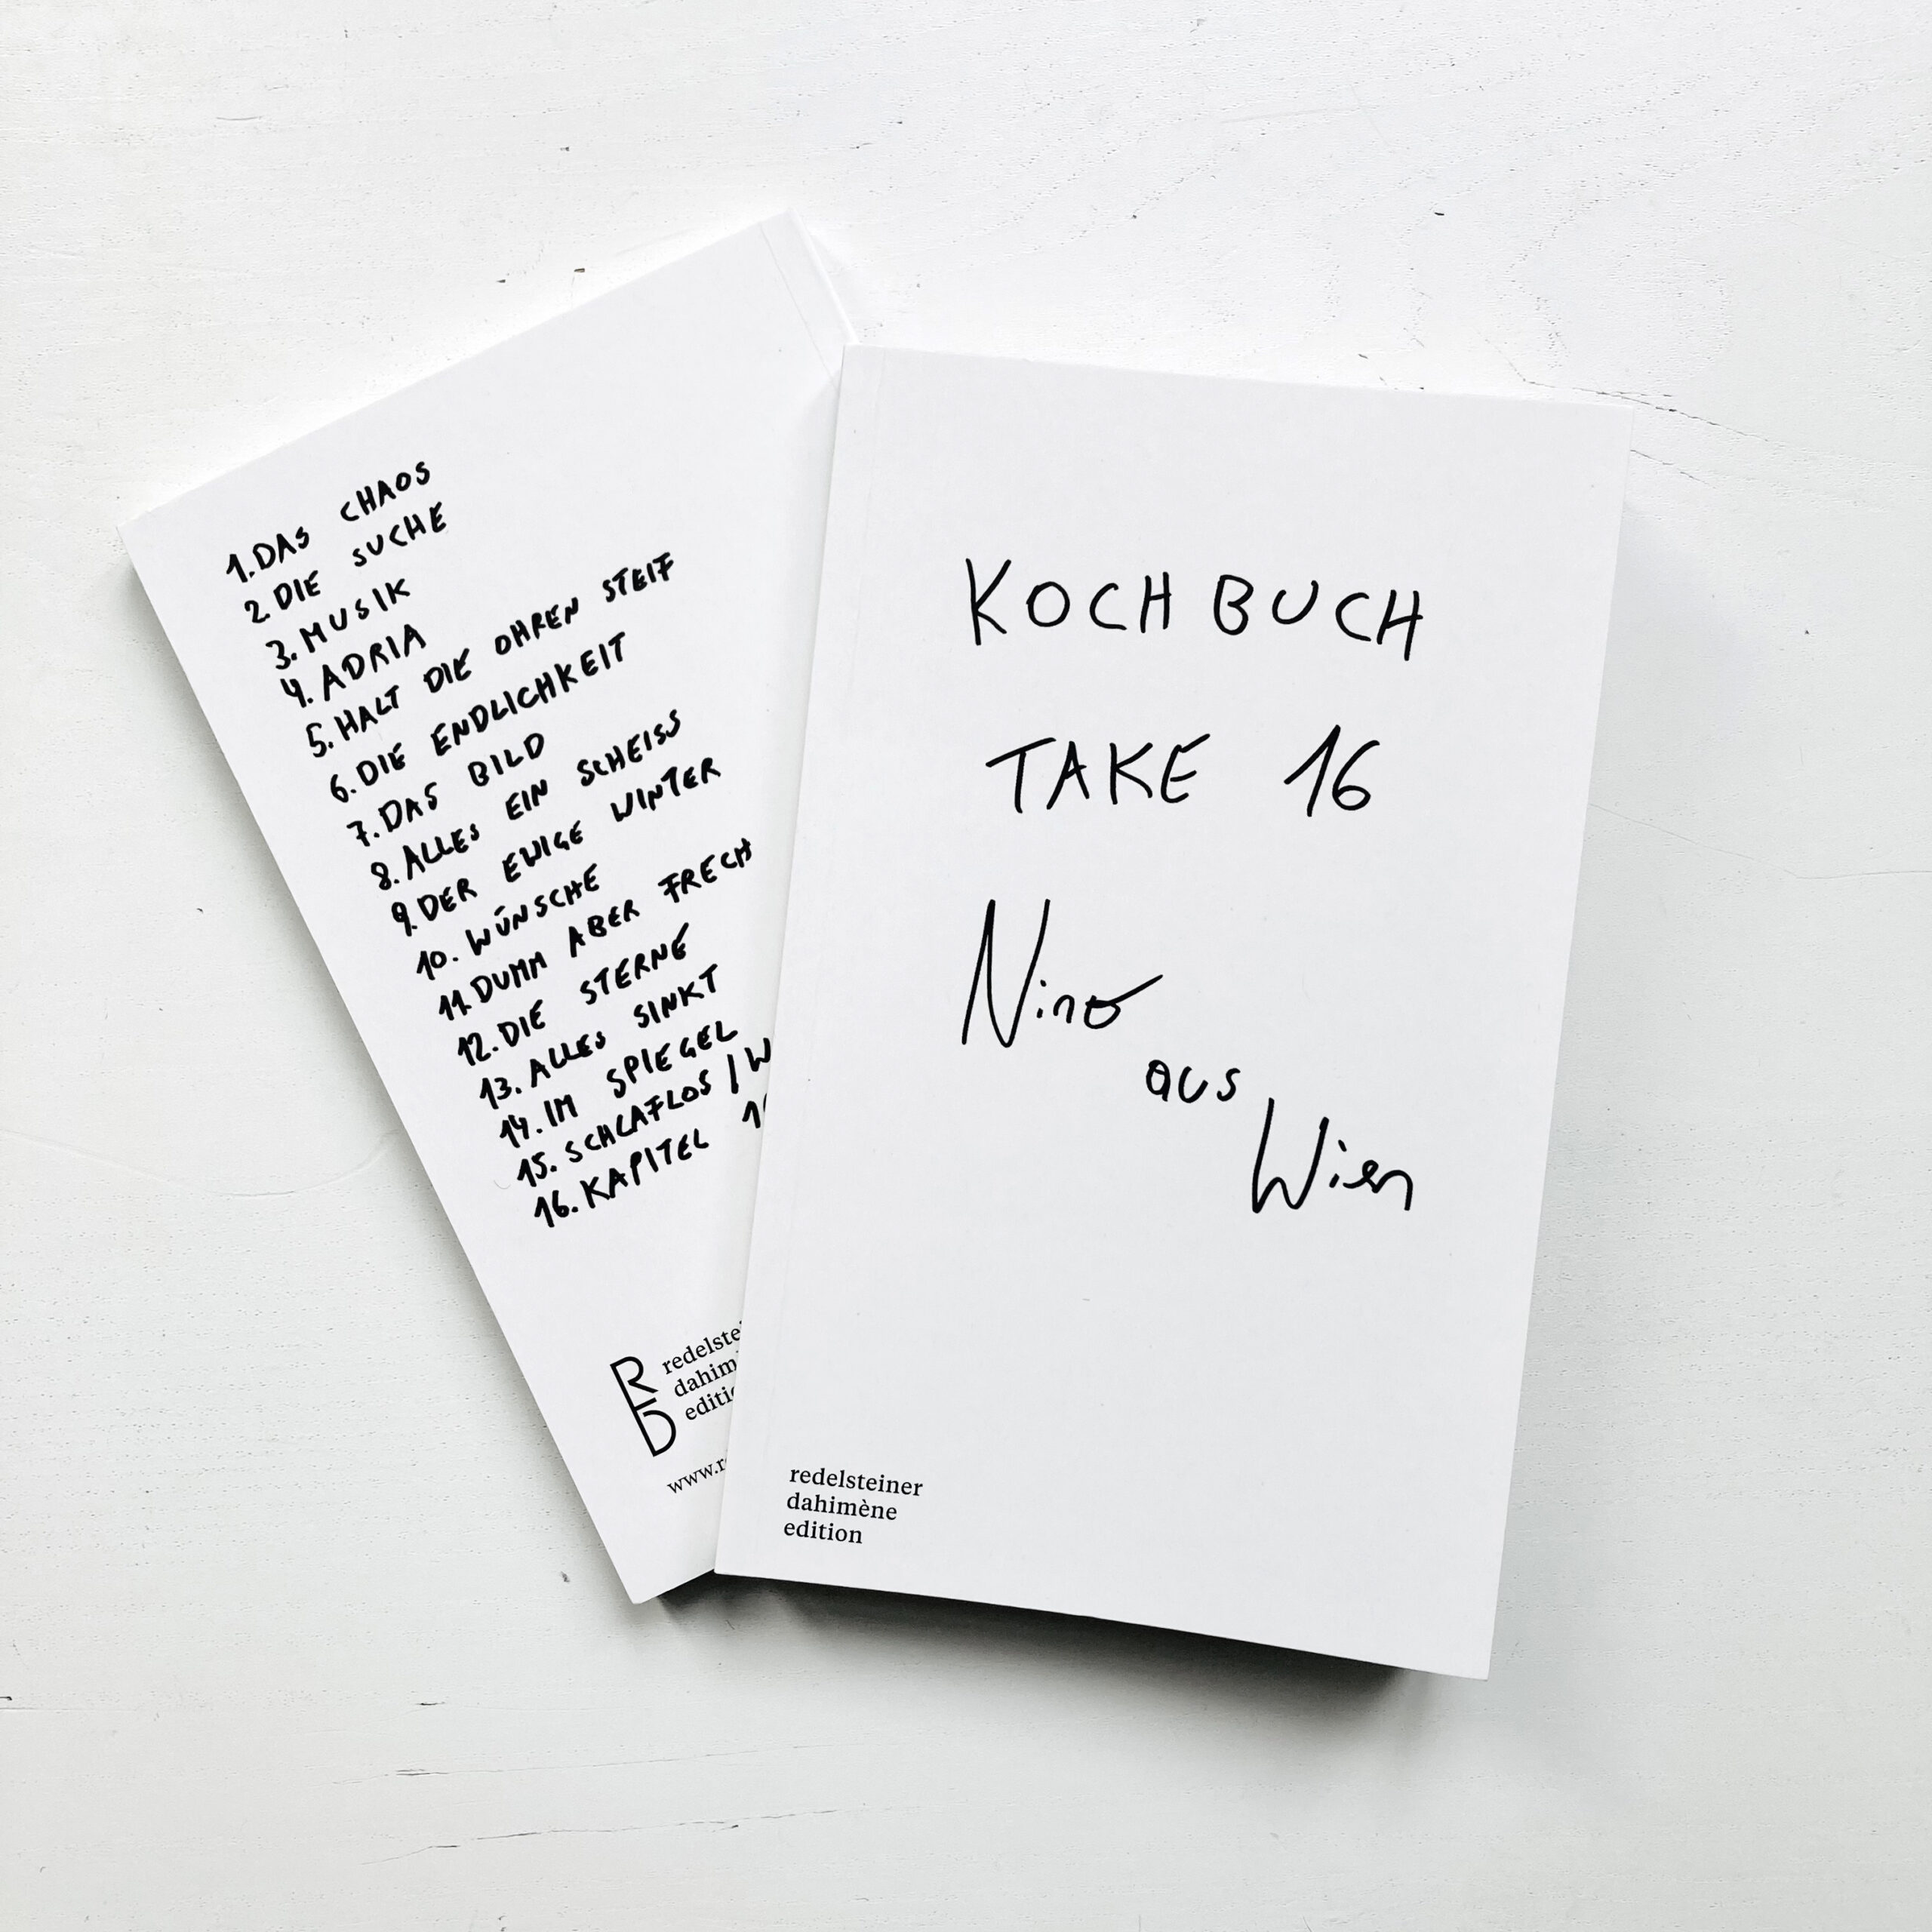 1. DAS CHAOS
2. DIE SUCHE
3. MUSIK
4. ADRIA
5. HALT DIE OHREN STEIF
6. DIE ENDLICHKEIT
7. DAS BILD
8. ALLES EIN SCHEISS
9. DER EWIGE WINTER
10. WÜNSCHE
11. DUMM ABER FRECH
12. DIE STERNE
13. ALLES SINKT
14. IM SPIEGEL
15. SCHLAFLOS /
16. KAPITEL
RD
edition
KOCHBUCH
TAKE 16
Nino
aus
Wien
redelsteiner
dahimène
edition